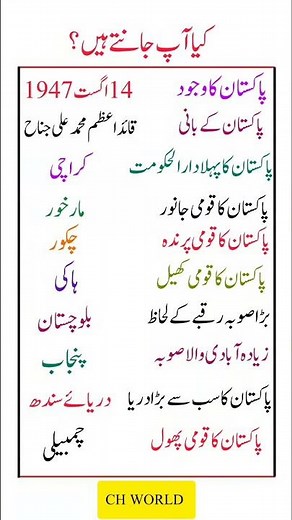 کیا آپ جانتے ہیں؟
پاکستان کا وجود 14 اگست 1947
پاکستان کے بانی قائداعظم محمد علی جناح
پاکستان کا پہلا دارالحکومت کراچی
پاکستان کا قومی جانور مارخور
پاکستان کا قومی پرندہ چکور
پاکستان کا قومی کھیل ہاکی
بڑا صوبہ رقبے کے لحاظ بلوچستان
زیادہ آبادی والا صوبہ پنجاب
پاکستان کا سب سے بڑا دریا دریائے سندھ
پاکستان کا قومی پھول چمبیلی
CH WORLD